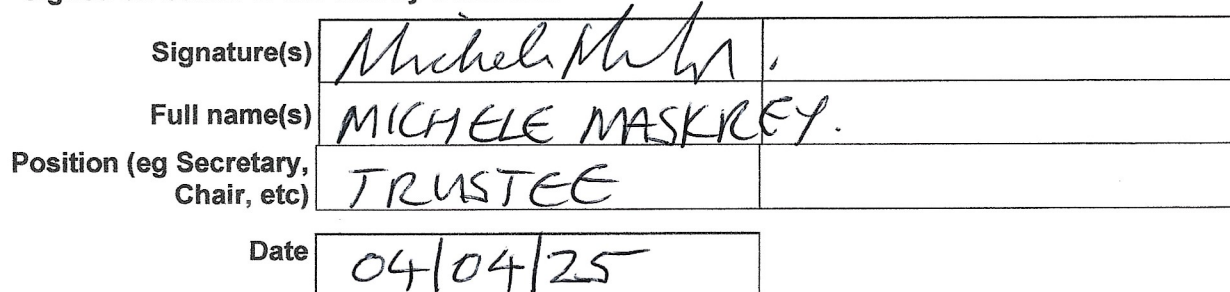 Signature(s) Michele
Full name(s) MICHELE MASKREY.
Position (eg Secretary,
Chair, etc) TRUSTEE
Date 04/04/25